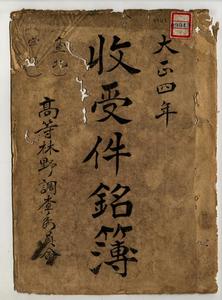 大正四年
收受件銘簿
高等林野調査委員會